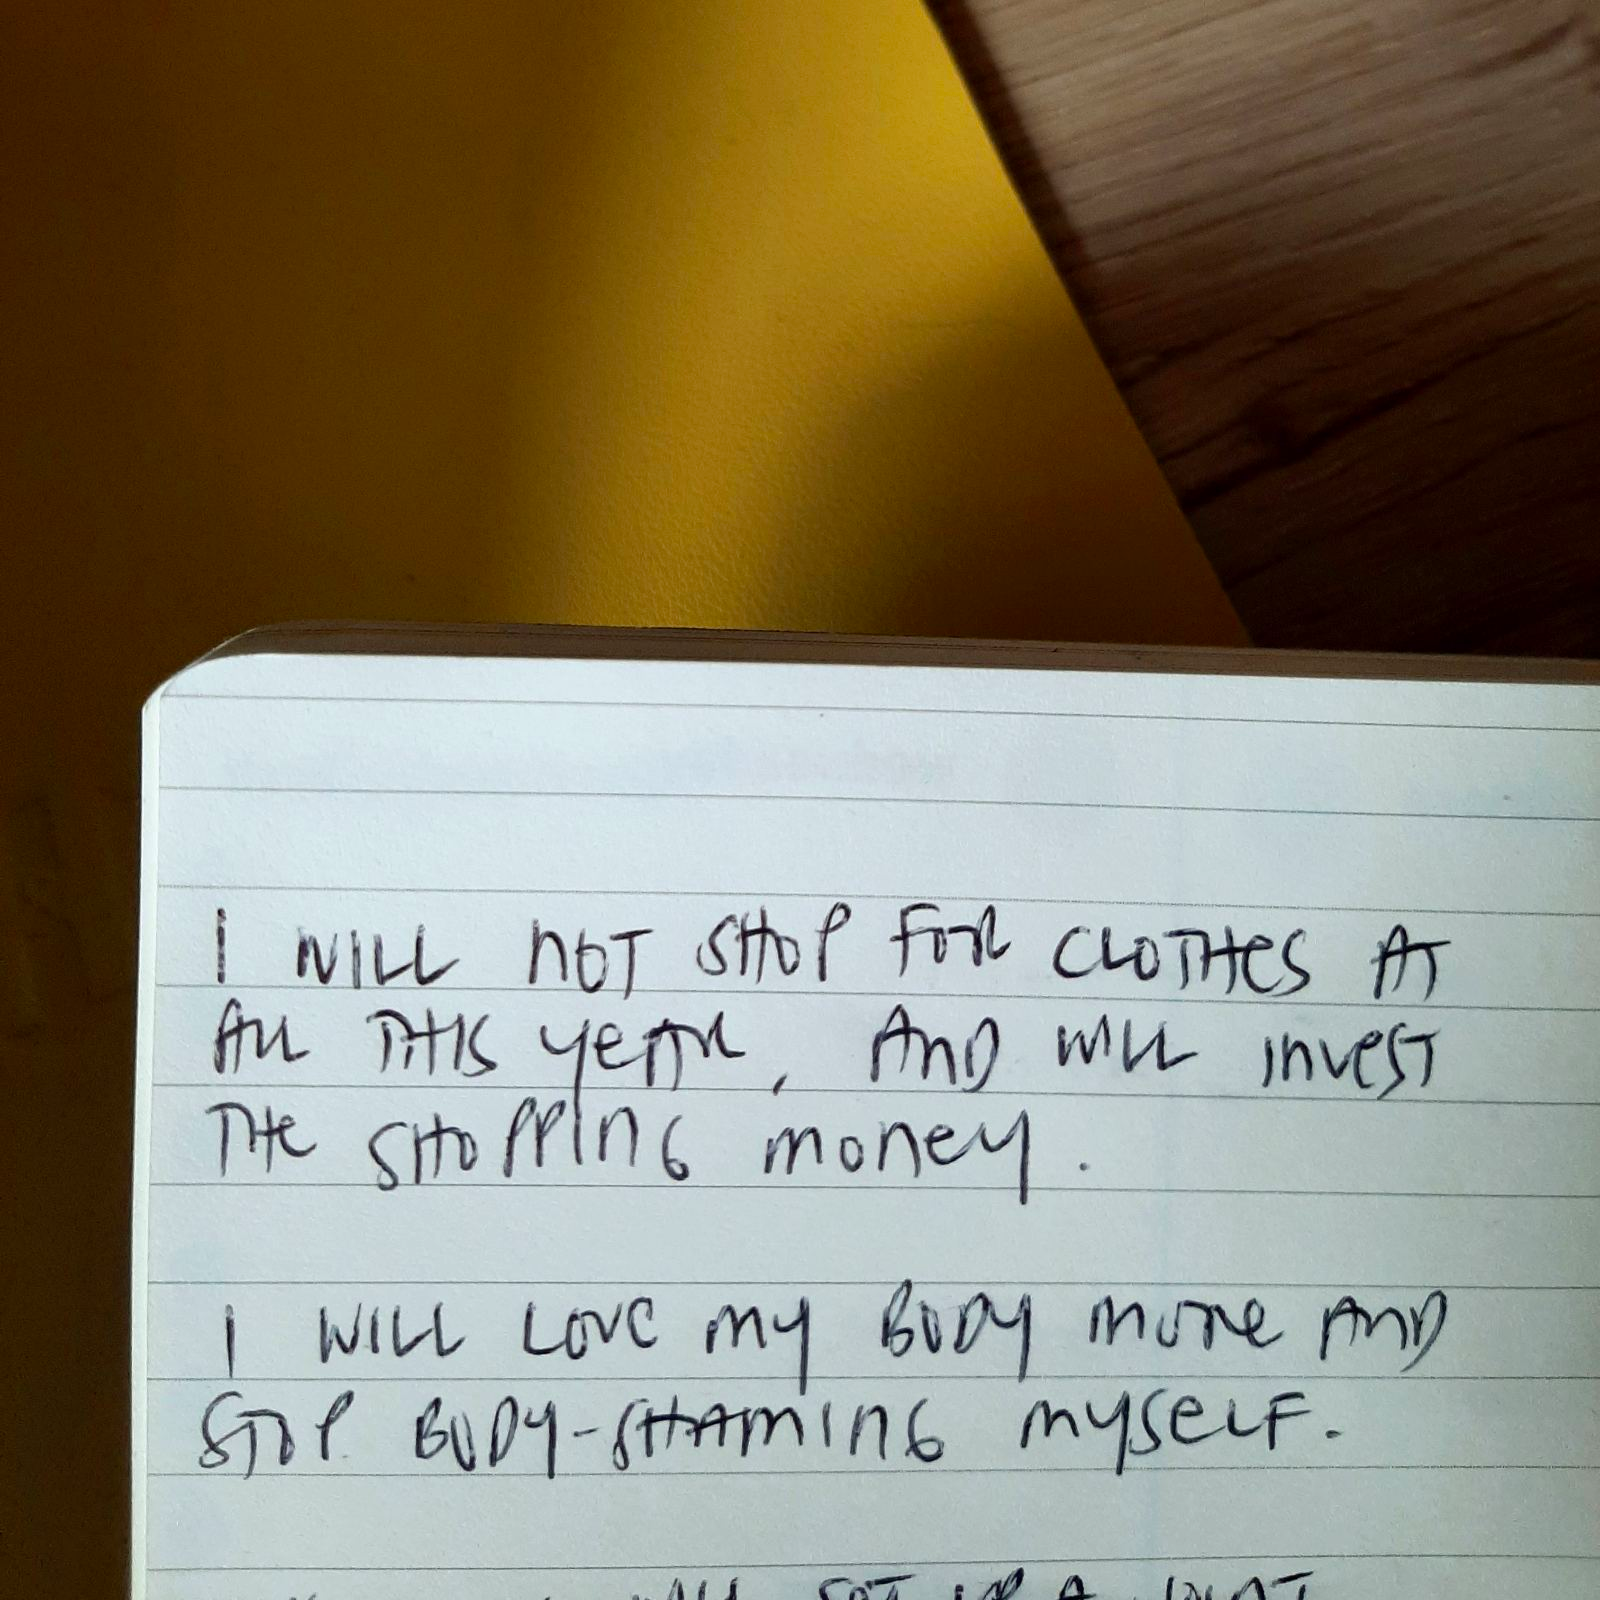 I WILL NOT SHOP FOR CLOTHES AT
ALL THIS YEAR, AND WILL INVEST
THE SHOPPING MONEY.
I WILL LOVE MY BODY MORE AND
STOP BODY-SHAMING MYSELF.
WILL SET UP A